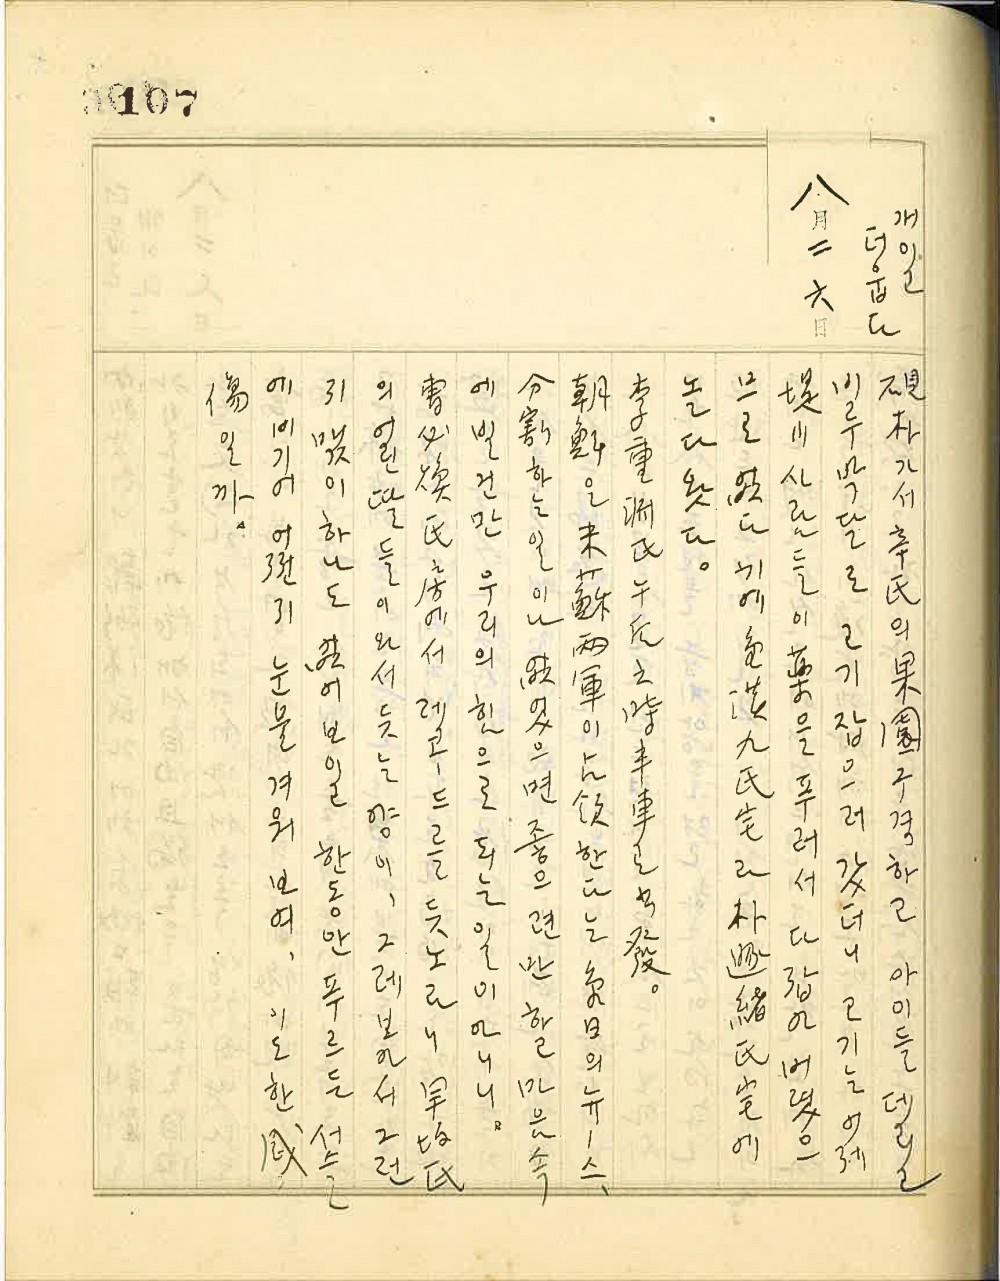 107
개일
더웁다
八月二六日
硯朴가서 辛氏의 果園 구경하고 아이들 데리고
비루박달로 고기잡으러 갔더니 고기는 어제
堤川 사람들이 藥을 푸러서 다 잡아 버렸으
므로 없다기에 金漢九氏宅과 朴遜緖氏宅에
놀다 왓다。
李重淵氏 午后 三時 半車로 出發。
朝鮮을 米蘇 兩軍이 占領한다는 今日의 뉴ー스、
分割하는 일이나 없었으면 좋으련만 할 마음속
에 빌건만 우리의 힘으로 되는 일이 아니니。
曺必煥氏 房에서 레코ー드를 듯노라니
의 열닌 딸들이 와서 듯는 양이、그레 보아서 그런
지 맺이 하나도 없어 보일 한동안 푸르든 서슬
에 비기어 어쩐지 눈물겨워 보여、이도 한 感
傷일까。